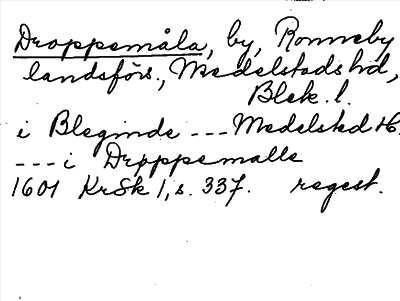 Droppemåla, by, Ronneby
landsförs., Medelstads hd,
Blek. l.
i Bleginde --- Medelsted H.
--- i Droppemalle
1601 KrSk 1, s. 337. regest.